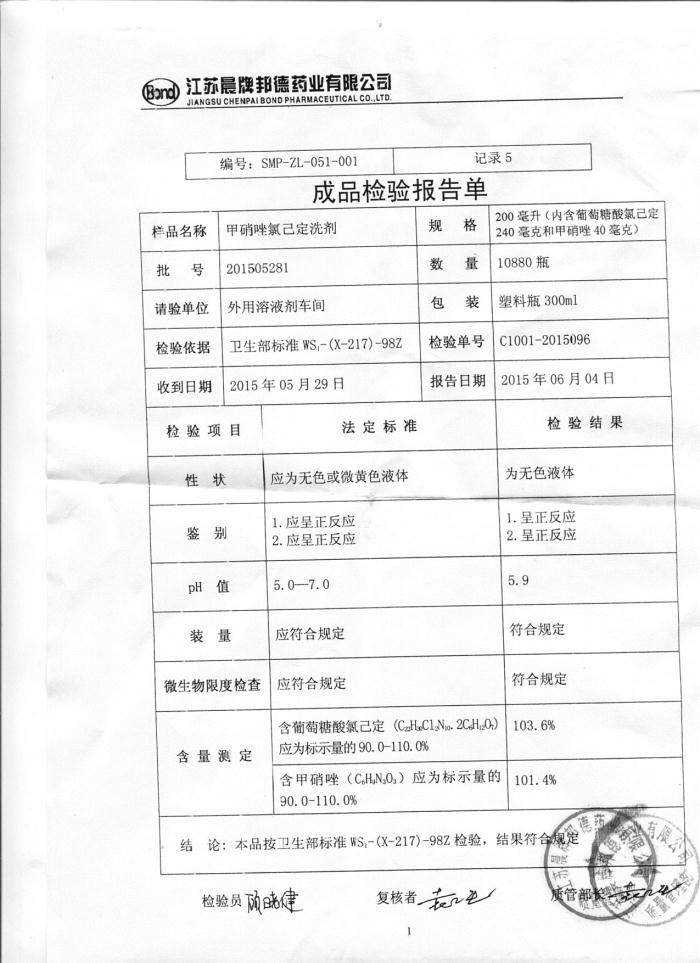 Bond 江苏晨牌邦德药业有限公司
JIANGSU CHENPAI BOND PHARMACEUTICAL CO.,LTD.
编号：SMP-ZL-051-001 记录 5
成品检验报告单
样品名称 甲硝唑氯己定洗剂 规 格 200 毫升（内含葡萄糖酸氯己定
240 毫克和甲硝唑 40 毫克）
批 号 201505281 数 量 10880 瓶
请验单位 外用溶液剂车间 包 装 塑料瓶 300ml
检验依据 卫生部标准 WS₁-(X-217)-98Z 检验单号 C1001-2015096
收到日期 2015 年 05 月 29 日 报告日期 2015 年 06 月 04 日
检 验 项 目 法 定 标 准 检 验 结 果
性 状 应为无色或微黄色液体 为无色液体
鉴 别 1.应呈正反应 1.呈正反应
2.应呈正反应 2.呈正反应
pH 值 5.0—7.0 5.9
装 量 应符合规定 符合规定
微生物限度检查 应符合规定 符合规定
含 量 测 定 含葡萄糖酸氯己定 103.6%
应为标示量的 90.0-110.0%
含甲硝唑（C₆H₉N₃O₃）应为标示量的 101.4%
90.0-110.0%
结 论：本品按卫生部标准 WS₁-(X-217)-98Z 检验，结果符合规定
检验员 复核者 质管部长
1